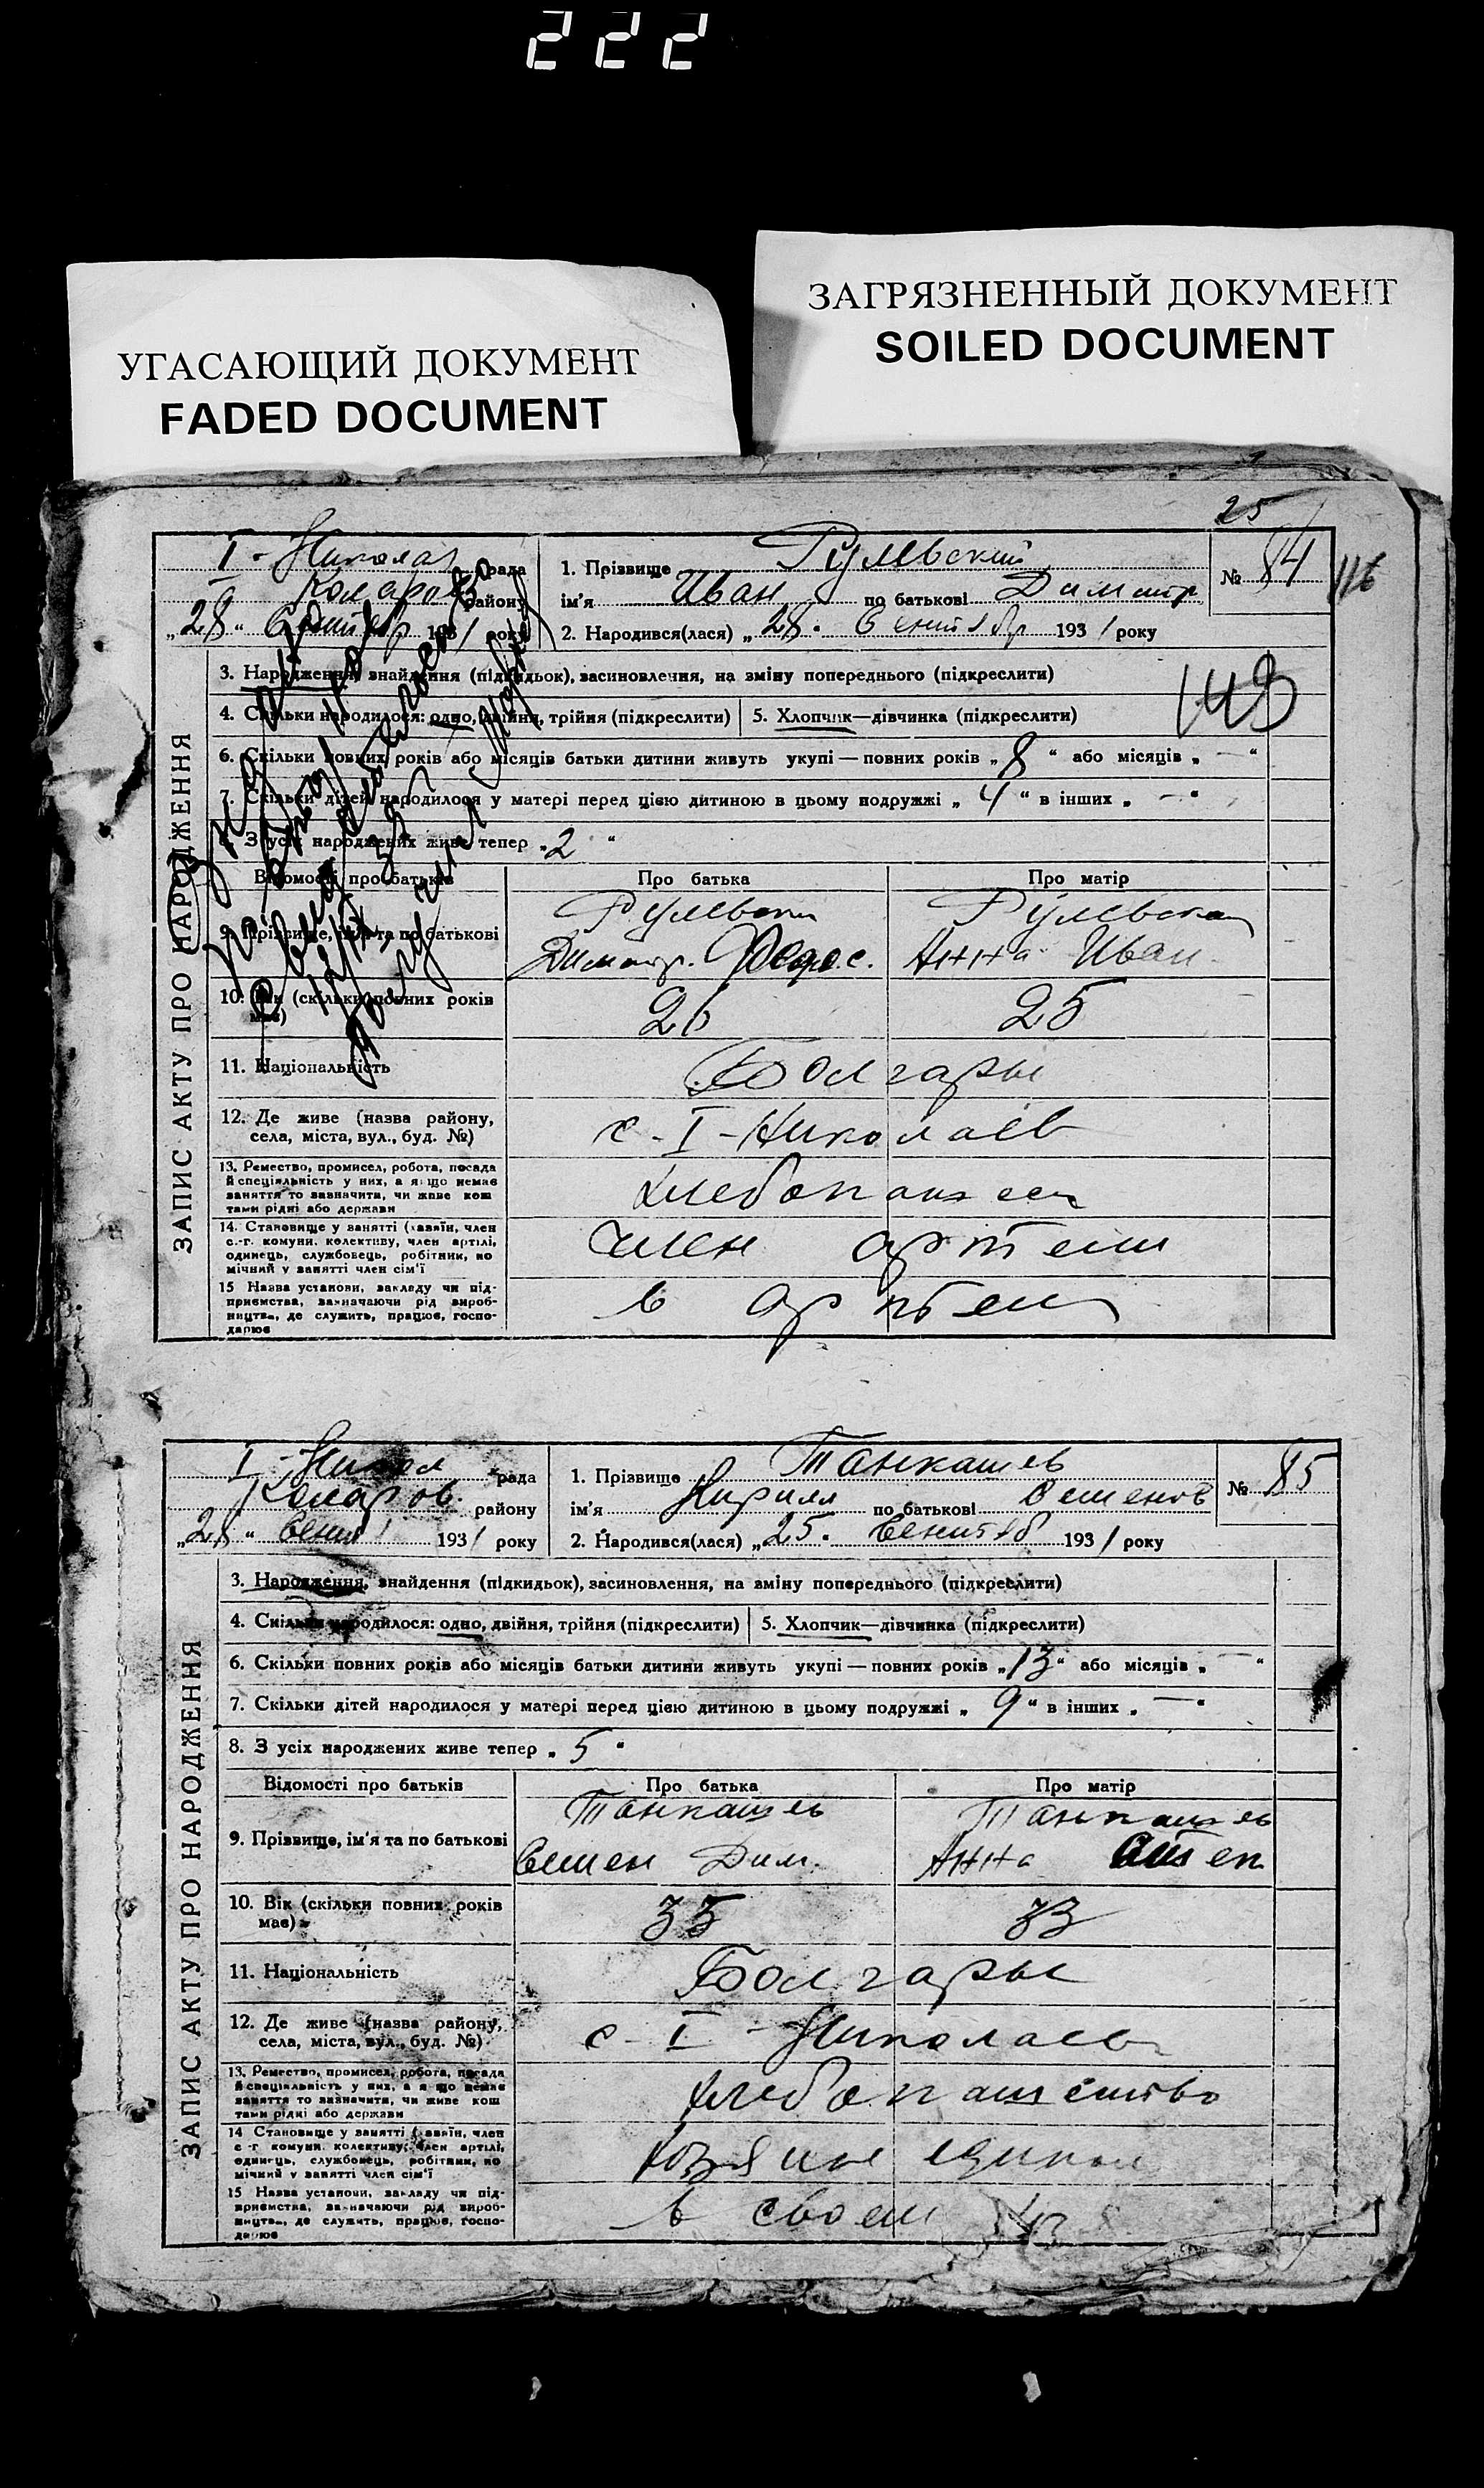 222
УГАСАЮЩИЙ ДОКУМЕНТ
FADED DOCUMENT
ЗАГРЯЗНЕННЫЙ ДОКУМЕНТ
SOILED DOCUMENT
25
ЗАПИС АКТУ ПРО НАРОДЖЕННЯ
I - Николая рада
Коларов району
„28“ Сентябр 1931 року
1. Прізвище Гулевский
ім'я Иван по батькові Димитр
2. Народився(лася) „28“ Сентябр 1931 року
№ 84
116
3. Народження, знайдення (підкидьок), засиновлення, на зміну попереднього (підкреслити)
143
4. Скільки народилося: одно, двійня, трійня (підкреслити) 5. Хлопчик—дівчинка (підкреслити)
6. Скільки повних років або місяців батьки дитини живуть укупі — повних років „8“ або місяців „—“
7. Скільки дітей народилося у матері перед цією дитиною в цьому подружжі „4“ в інших „—“
8. З усіх народжених живе тепер „2“
Відомості про батьків Про батька Про матір
9. Прізвище, ім'я та по батькові
Гулевски Димитр. Федос.
Гулевская Анна Иван.
10. Вік (скільки повних років має) 26 25
11. Національність Болгары
12. Де живе (назва району, села, міста, вул., буд. №) с - I - Николаев
13. Ремество, промисел, робота, посада й спеціяльність у них, а якщо немає заняття то зазначити, чи живе коштами рідні або держави
14. Становище у занятті (хазяїн, член с.-г. комуни, колективу, член артілі, одинець, службовець, робітник, помічний у занятті член сім'ї член артели
15 Назва установи, закладу чи підприємства, зазначаючи рід виробництва, де служить, працює, господарює в артели
ЗАПИС АКТУ ПРО НАРОДЖЕННЯ
I - Никол рада
Коларов. району
„28“ Сент 1931 року
1. Прізвище Танкашев
ім'я Кирилл по батькові Семенов
2. Народився(лася) „25“ Сентяб 1931 року
№ 85
3. Народження, знайдення (підкидьок), засиновлення, на зміну попереднього (підкреслити)
4. Скільки народилося: одно, двійня, трійня (підкреслити) 5. Хлопчик—дівчинка (підкреслити)
6. Скільки повних років або місяців батьки дитини живуть укупі — повних років „13“ або місяців „—“
7. Скільки дітей народилося у матері перед цією дитиною в цьому подружжі „9“ в інших „—“
8. З усіх народжених живе тепер „5“
Відомості про батьків Про батька Про матір
9. Прізвище, ім'я та по батькові
Танкашев Семен Дим.
Танкашев Анна
10. Вік (скільки повних років має) 35 33
11. Національність Болгары
12. Де живе (назва району, села, міста, вул., буд. №) с - I - Николаев
13. Ремество, промисел, робота, посада й спеціяльність у них, а якщо немає заняття то зазначити, чи живе коштами рідні або держави хлебопашество
14 Становище у занятті (хазяїн, член с.-г. комуни, колективу, член артілі, одинець, службовець, робітник, помічний у занятті член сім'ї хозяин
15 Назва установи, закладу чи підприємства, зазначаючи рід виробництва, де служить, працює, господарює в своем